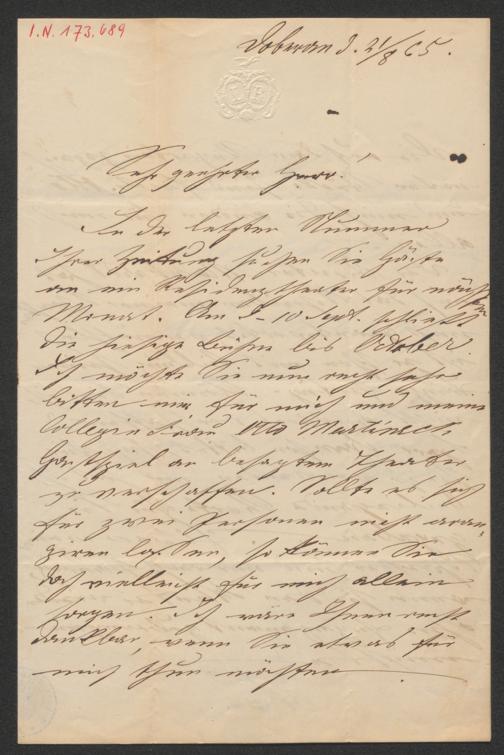 I.N. 173.689
Doberan d. 21/8 65.
Sehr geehrter Herr!
In der letzten Nummer
Ihrer Zeitung suchen Sie Gäste
an ein Residenztheater für nächsten
Monat. Am 9-10 Sept. schließt
die hiesige Bühne bis October.
Ich möchte Sie nun recht sehr
bitten mir, für mich und meine
Collegin Frau Martineck
Gastspiel an besagtem Theater
zu verschaffen. Sollte es sich
für zwei Personen nicht aran,
giren lassen, so können Sie
doch vielleicht für mich allein
sorgen. Ich wäre Ihnen recht
dankbar, wenn Sie etwas für
mich thun möchten